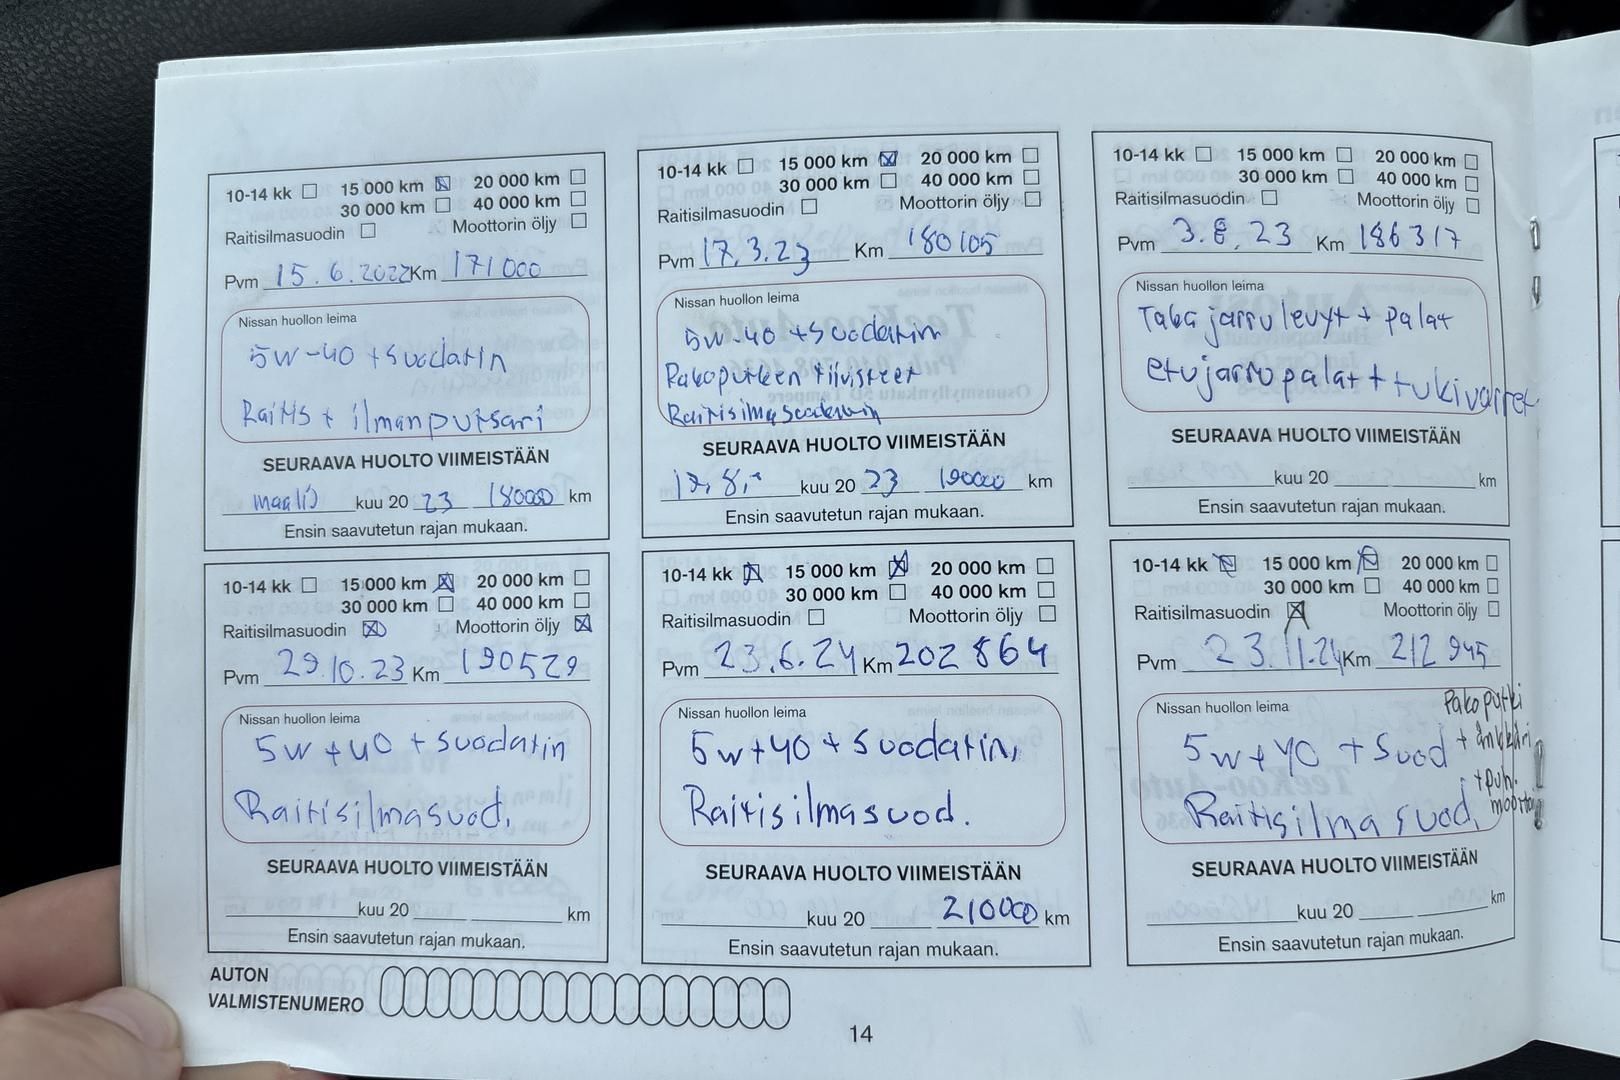 10-14 kk 15 000 km 20 000 km
30 000 km 40 000 km
Raitisilmasuodin Moottorin öljy
Pvm 15.6.2022 Km 171000
Nissan huollon leima
5w-40 + suodatin
Raitis + ilmanputsari
SEURAAVA HUOLTO VIIMEISTÄÄN
maalis kuu 20 23 180000 km
Ensin saavutetun rajan mukaan.
10-14 kk 15 000 km 20 000 km
30 000 km 40 000 km
Raitisilmasuodin Moottorin öljy
Pvm 17.3.23 Km 180105
Nissan huollon leima
5w-40 + suodatin
Pakoputken tiivisteet
Raitisilmasuodatin
SEURAAVA HUOLTO VIIMEISTÄÄN
17.8. kuu 20 23 190000 km
Ensin saavutetun rajan mukaan.
10-14 kk 15 000 km 20 000 km
30 000 km 40 000 km
Raitisilmasuodin Moottorin öljy
Pvm 3.8.23 Km 186317
Nissan huollon leima
Taka jarrulevyt + palat
etujarrupalat + tukivarret
SEURAAVA HUOLTO VIIMEISTÄÄN
kuu 20 km
Ensin saavutetun rajan mukaan.
10-14 kk 15 000 km 20 000 km
30 000 km 40 000 km
Raitisilmasuodin Moottorin öljy
Pvm 29.10.23 Km 190529
Nissan huollon leima
5w+40 + suodatin
Raitisilmasuod.
SEURAAVA HUOLTO VIIMEISTÄÄN
kuu 20 km
Ensin saavutetun rajan mukaan.
10-14 kk 15 000 km 20 000 km
30 000 km 40 000 km
Raitisilmasuodin Moottorin öljy
Pvm 23.6.24 Km 202 864
Nissan huollon leima
5w+40 + suodatin,
Raitisilmasuod.
SEURAAVA HUOLTO VIIMEISTÄÄN
kuu 20 210000 km
Ensin saavutetun rajan mukaan.
10-14 kk 15 000 km 20 000 km
30 000 km 40 000 km
Raitisilmasuodin Moottorin öljy
Pvm 23.11.24 Km 212 945
Nissan huollon leima
Pakoputki
5w+40 + suod
+ puh.
Raitisilmasuod.
SEURAAVA HUOLTO VIIMEISTÄÄN
kuu 20 km
Ensin saavutetun rajan mukaan.
AUTON
VALMISTENUMERO
14